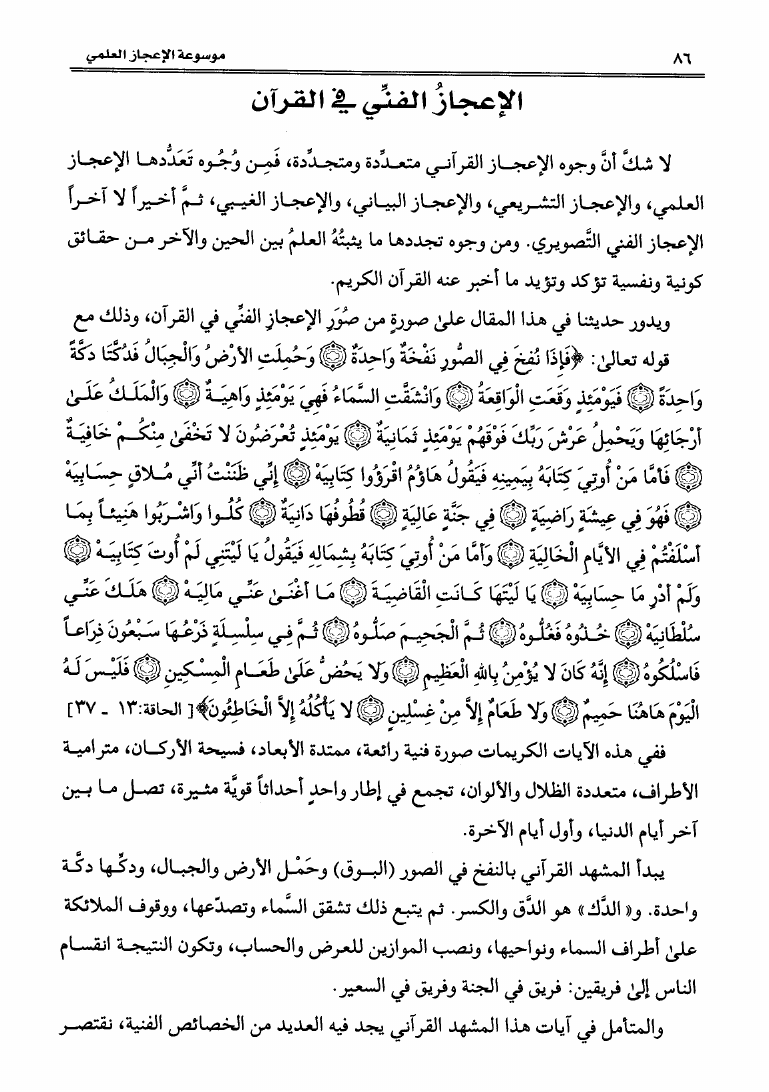 ٨٦
موسوعة الإعجاز العلمي
الإعجازُ الفنِّي في القرآن
لا شكَّ أنَّ وجوه الإعجـاز القرآنـي متعـدِّدة ومتجـدِّدة، فَمِـن وُجُـوه تَعَدُّدهـا الإعجـاز
العلمي، والإعجـاز التشـريعي، والإعجـاز البيـاني، والإعجـاز الغيـبي، ثـمَّ أخـيراً لا آخـراً
الإعجاز الفني التَّصويري. ومن وجوه تجددها ما يثبتُهُ العلمُ بين الحين والآخر مـن حقـائق
كونية ونفسية تؤكد وتؤيد ما أخبر عنه القرآن الكريم.
ويدور حديثنا في هذا المقال على صورةٍ من صُوَرِ الإعجازِ الفنِّي في القرآن، وذلك مع
قوله تعالى: ﴿فَإِذَا نُفِخَ فِي الصُّورِ نَفْخَةٌ وَاحِدَةٌ ۝ وَحُمِلَتِ الأَرْضُ وَالْجِبَالُ فَدُكَّتَا دَكَّةً
وَاحِدَةً ۝ فَيَوْمَئِذٍ وَقَعَتِ الْوَاقِعَةُ ۝ وَانْشَقَّتِ السَّمَاءُ فَهِيَ يَوْمَئِذٍ وَاهِيَـةٌ ۝ وَالْمَلَـكُ عَلَـى
أَرْجَائِهَا وَيَحْمِلُ عَرْشَ رَبِّكَ فَوْقَهُمْ يَوْمَئِذٍ ثَمَانِيَةٌ ۝ يَوْمَئِذٍ تُعْرَضُونَ لا تَخْفَى مِنْكُـمْ خَافِيَـةٌ
۝ فَأَمَّا مَنْ أُوتِيَ كِتَابَهُ بِيَمِينِهِ فَيَقُولُ هَاؤُمُ اقْرَؤُوا كِتَابِيَهْ ۝ إِنِّي ظَنَنْتُ أَنِّي مُـلاقٍ حِسَـابِيَهْ
۝ فَهُوَ فِي عِيشَةٍ رَاضِيَةٍ ۝ فِي جَنَّةٍ عَالِيَةٍ ۝ قُطُوفُهَا دَانِيَةٌ ۝ كُلُـوا وَاشْـرَبُوا هَنِيئـاً بِمَـا
أَسْلَفْتُمْ فِي الأَيَّامِ الْخَالِيَةِ ۝ وَأَمَّا مَنْ أُوتِيَ كِتَابَهُ بِشِمَالِهِ فَيَقُولُ يَا لَيْتَنِي لَمْ أُوتَ كِتَابِيَـهْ ۝
وَلَمْ أَدْرِ مَا حِسَابِيَهْ ۝ يَا لَيْتَهَا كَـانَتِ الْقَاضِيَـةَ ۝ مَـا أَغْنَـى عَنِّـي مَالِيَـهْ ۝ هَلَـكَ عَنِّـي
سُلْطَانِيَهْ ۝ خُـذُوهُ فَغُلُّـوهُ ۝ ثُـمَّ الْجَحِيـمَ صَلُّـوهُ ۝ ثُـمَّ فِـي سِلْسِـلَةٍ ذَرْعُـهَا سَـبْعُونَ ذِرَاعـاً
فَاسْلُكُوهُ ۝ إِنَّهُ كَانَ لا يُؤْمِنُ بِاللهِ الْعَظِيمِ ۝ وَلا يَحُضُّ عَلَى طَعَـامِ الْمِسْـكِينِ ۝ فَلَيْـسَ لَـهُ
الْيَوْمَ هَاهُنَا حَمِيمٌ ۝ وَلا طَعَامٌ إِلاَّ مِنْ غِسْلِينٍ ۝ لا يَأْكُلُهُ إِلاَّ الْخَاطِئُونَ﴾ [الحاقة:١٣ ـ ٣٧]
ففي هذه الآيات الكريمات صورة فنية رائعة، ممتدة الأبعاد، فسيحة الأركـان، متراميـة
الأطراف، متعددة الظلال والألوان، تجمع في إطار واحدٍ أحداثاً قويَّة مثـيرة، تصـل مـا بـين
آخر أيام الدنيا، وأول أيام الآخرة.
يبدأ المشهد القرآني بالنفخ في الصور (البـوق) وحَمْـل الأرض والجبـال، ودكِّـها دكَّـة
واحدة. و« الدَّك» هو الدَّق والكسر. ثم يتبع ذلك تشقق السَّماء وتصدّعها، ووقوف الملائكة
على أطراف السماء ونواحيها، ونصب الموازين للعرض والحساب، وتكون النتيجـة انقسـام
الناس إلى فريقين: فريق في الجنة وفريق في السعير.
والمتأمل في آيات هذا المشهد القرآني يجد فيه العديد من الخصائص الفنية، نقتصـر